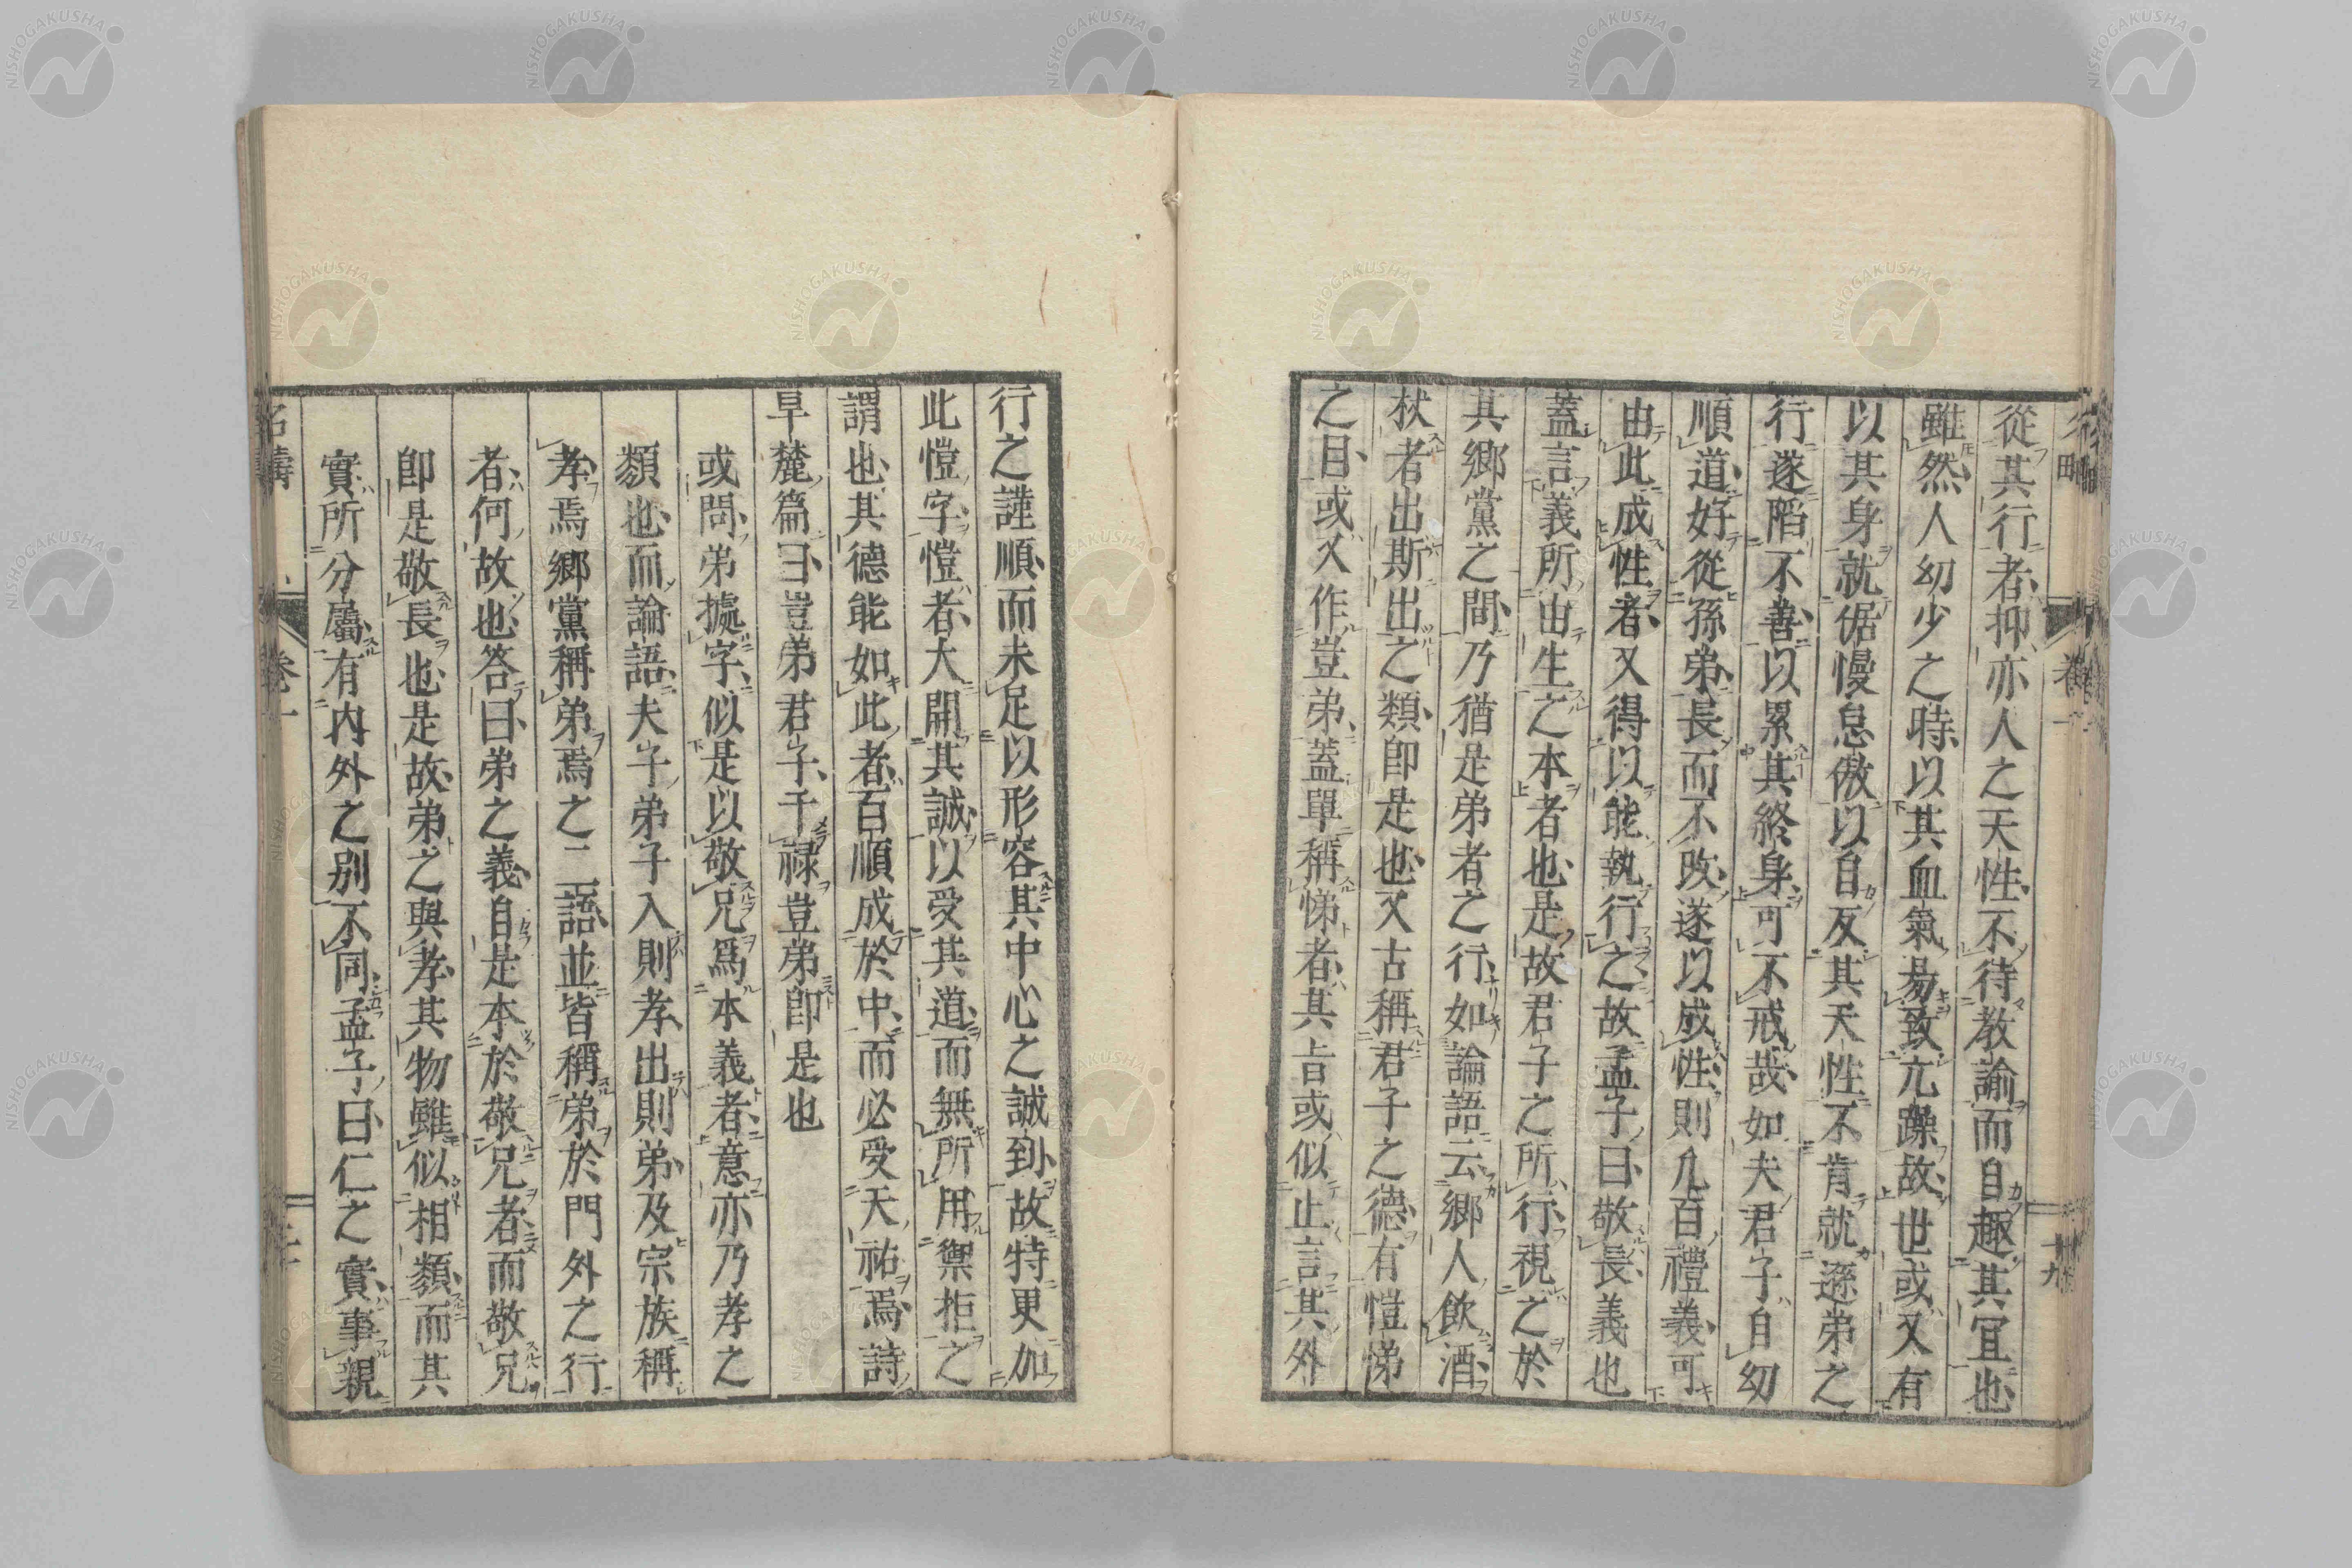 從其行者、抑亦人之天性、不待教諭而自趣其宜也
雖然、人幼少之時、以其血氣易致亢躁故、世或又有
以其身就倨慢怠傲以自反其天性不肯就遜弟之
行遂陷不善、以累其終身、可不戒哉、如夫君子自幼
順道、好從孫弟、長而不改、遂以成性、則凡百禮義、可
由此成性者、又得以能執行之、故孟子曰、敬長義也
蓋言義所由生之本者也、是故君子之所行、視之於
其鄉黨之間、乃猶是弟者之行、如論語云、鄉人飲酒、
杖者出斯出之類、即是也、又古稱君子之德、有愷悌
之目、或又作豈弟、蓋單稱悌者、其旨或似止言其外
卷一
十九
行之謹順、而未足以形容其中心之誠到、故特更加
此愷字、愷者、大開其誠、以受其道、而無所用禦拒之
謂也、其德能如此者、百順成於中、而必受天祐焉、詩
旱麓篇曰、豈弟君子、干祿豈弟、即是也
或問、弟據字、似是以敬兄爲本義者、意亦乃孝之
類也、而論語、夫子弟子入則孝、出則弟、及宗族稱
孝焉、鄉黨稱弟焉之二語、並皆稱弟於門外之行
者、何故也、答曰、弟之義、自是本於敬兄者、而敬兄
即是敬長也、是故弟之與孝、其物雖似相類、而其
實所分屬、有內外之別不同、孟子曰、仁之實、事親
名疇
卷一